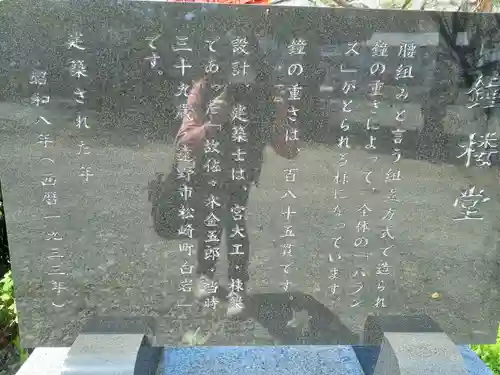 鐘楼堂
腰組みと言う組立方式で造られ
鐘の重さによって、全体の「バラン
ス」がとられる様になっています
鐘の重さは、百八十五貫です。
設計、建築士は、宮大工・棟梁
であった「故佐々木金五郎・当時
三十九歳」遠野市松崎町白岩」
です。
建築された年
昭和八年(西暦一九三三年)